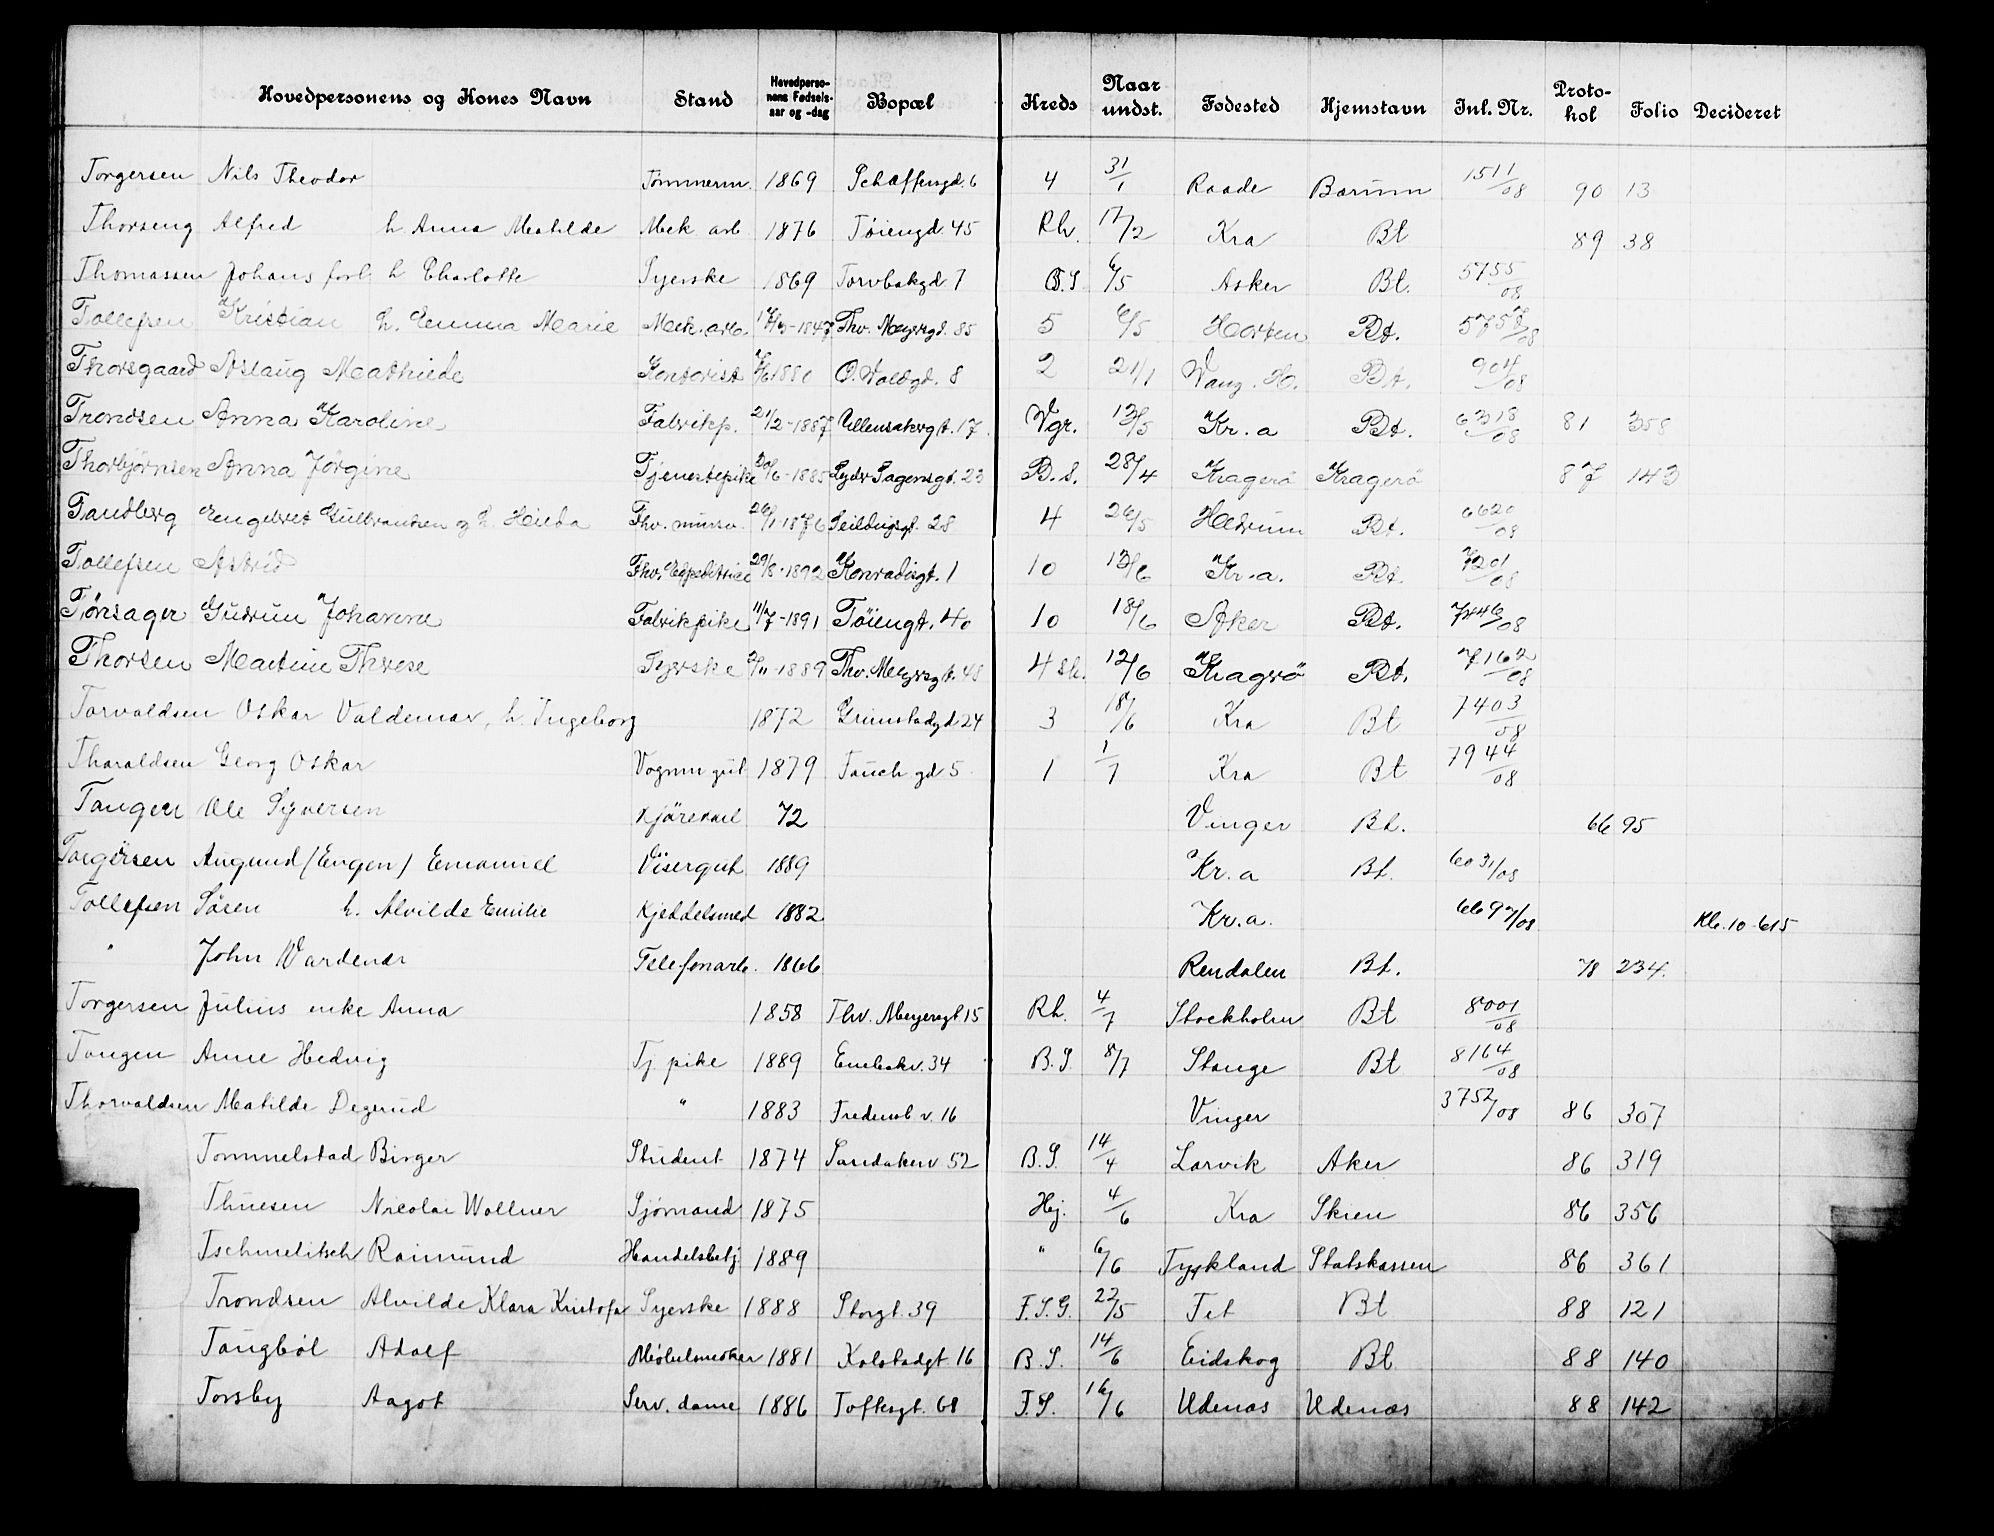 Hovedpersonens og Kones Navn Stand Hovedpersonens Fødselsaar og -dag Bopæl Kreds Naar undst. Fødested Hjemstavn Inl. Nr. Protokol Folio Decideret
Torgersen Nils Theodor Tømmerm. 1869 Schaffengd. 6 4 31/1 Raade Bærum 1511/08 90 13
Thorseng Alfred h. Anna Mathilde Mek arb 1876 Tøiengd. 45 Rh. 17/2 Kra Bt 89 38
Thomassen Johans forl. h Charlotte Syerske 1869 Torvbakgd 7 B.S. 6/5 Asker Bt. 5755/08
Tollefsen Kristian h. Emma Marie Mek. arb. 1847 Thv. Meyersgt. 85 5 6/5 Horten Bt. 5757/08
Thorsgaard Aslaug Mathilde Kontorist 1880 O. Voldgt. 8 2 21/1 Vang. H. Bt. 904/08
Trondsen Anna Karoline Fabrikp. 21/2-1887 Ullensakergt. 17. Vgr. 13/5 Kr.a Bt. 6318/08 81 358
Thorbjørnsen Anna Jørgine Tjenestepike 30/6-1885 Lyder Sagensgt. 23 B.S. 28/4 Kragerø Kragerø 87 143
Tandberg Engebret Gulbrandsen og h. Hilda Fhv. murer. 26/1 1876 Seildugsgt. 28 4 26/5 Hedrum Bt. 6620/08
Tollefsen Astrid Fhv. Expeditrice 29/8-1892 Konradisgt. 1 10 13/6 Kr.a. Bt. 7201/08
Tønsager Gudrun Johanne Fabrikpike 11/7-1891 Tøiengt. 40 10 18/6 Aker Bt. 7446/08
Thorsen Martine Therese Syerske 2/11-1889 Thv. Meyersgt. 48 4 Sk. 12/6 Kragerø Bt. 7162/08
Torvaldsen Oskar Valdemar, h. Ingeborg 1872 Grimstadgd 24 3 18/6 Kra Bt 7403/08
Tharaldsen Georg Oskar Vognm gut 1879 Tauch gd 5 1 1/7 Kra Bt 7944/08
Tangen Ole Syversen Kjørekarl 72 Vinger Bt. 66 95
Torgersen Augund (Eugen) Emanuel Visergut 1889 Kr.a Bt. 6031/08
Tollefsen Søren h. Alvilde Emilie Kjeddelsmed 1882 Kr.a. 6697/08 Kb. 10-615
" John Vardener Telefonarb. 1866 Rendalen Bt. 78 234.
Torgersen Julius enke Anna 1858 Thv. Meyersgt 15 Rh. 4/7 Stockholm Bt 8001/08
Tangen Anne Hedvig Tj pike 1889 Enebakv. 34 B.S. 8/7 Stange Bt 8164/08
Thorvaldsen Mathilde Degerud " 1883 Fredensb v. 16 Vinger 3752/08 86 307
Tommelstad Birger Student 1874 Sandakerv 52 B.S. 14/4 Larvik Aker 86 319
Thuesen Nicolai Wollner Sjømand 1875 Hej. 4/6 Kra Skien 86 356
Tschmelitsch Raimund Handelsbetj 1889 " 6/6 Tyskland Statskassen 86 361
Trondsen Alvilde Klara Kristofa Syerske 1888 Storgt. 39 F.S.G. 22/5 Fet Bt 88 121
Taugbøl Adolf Møbelsnedker 1881 Kolstadgt 16 B.S. 14/6 Eidskog Bt 88 140
Torsby Aagot Serv. dame 1886 Toftesgt. 68 F.S. 16/6 Udenæs Udenæs 88 142